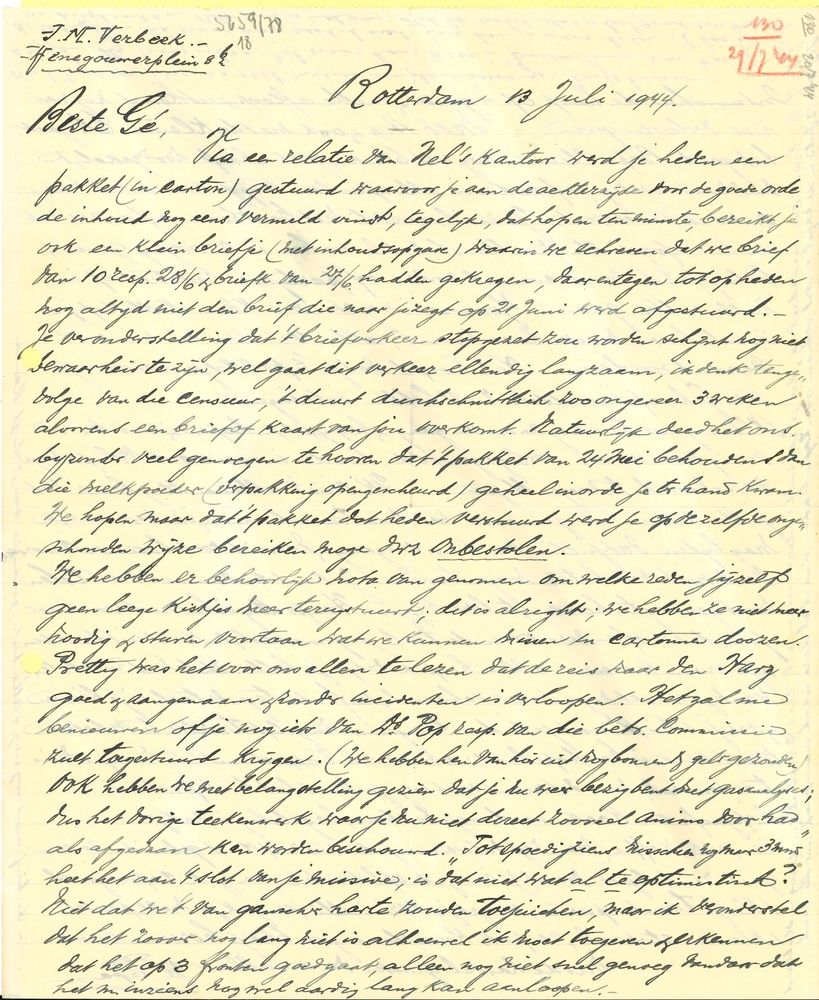 5659/78
18
130
29/7 '44
J. M. Verbeek.-
Henegouwerplein 8b
Rotterdam 13 Juli 1944.
Beste Gé,
Via een relatie van Nel's Kantoor werd je heden een
pakket (in carton) gestuurd waarvoor je aan de achterzijde voor de goede orde
de inhoud nog eens vermeld vindt, tegelijk, dat hopen ten minste, bereikt je
ook een klein briefje (met inhoudsopgave) waarin we schreven dat we brief
van 10 resp. 28/6 & briefk van 27/6 hadden gekregen, daarentegen tot op heden
nog altyd niet den brief die naar je zegt op 21 Juni werd afgestuurd.-
Je veronderstelling dat 't briefverkeer stopgezet zou worden schynt nog niet
bewaarheid te zyn, wel gaat dit verkeer ellendig langzaam, ik denk tenge-
volge van die censuur, 't duurt durchschnittlich zoo ongeveer 3 weken
alvorens een brief of kaart van jou overkomt. Natuurlyk deed het ons
byzonder veel genoegen te hooren dat 't pakket van 24 Mei behoudens dan
die melkpoeder (verpakking opengescheurd) geheel in orde je ter hand kwam.
We hopen maar dat 't pakket dat heden verstuurd werd je op dezelfde onge-
schonden wyze bereiken moge dwz onbestolen.
We hebben er behoorlyk nota van genomen om welke reden jyzelf
geen leege kistjes meer terugstuurt; dit is alright; we hebben ze niet meer
noodig & sturen voortaan wat we kunnen missen in cartonnen doozen.
Prettig was het voor ons allen te lezen dat de reis naar den Harz
goed & aangenaam & zonder incidenten is verloopen. Het zal me
benieuwen of je nog iets van Ds Pop resp. van die betr. Commissie
zult toegestuurd krygen. (We hebben hen van hieruit nog bonnen & geld gezonden)
Ook hebben we met belangstelling gezien dat je nu weer bezig bent met gasanalyses;
dus het vorige teekenwerk waar je nu niet direct zooveel animo voor had
als afgedaan kan worden beschouwd. "Tot spoedig ziens misschien nog maar 3 mnd"
heet het aan 't slot van je missive; is dat niet wat al te optimistisch?
Niet dat we 't van ganscher harte zouden toejuichen, maar ik veronderstel
dat het zoover nog lang niet is alhoewel ik moet toegeven & erkennen
dat het op 3 fronten goed gaat, alleen nog niet snel genoeg vandaar dat
het m. inziens nog wel aardig lang kan aanloopen.-